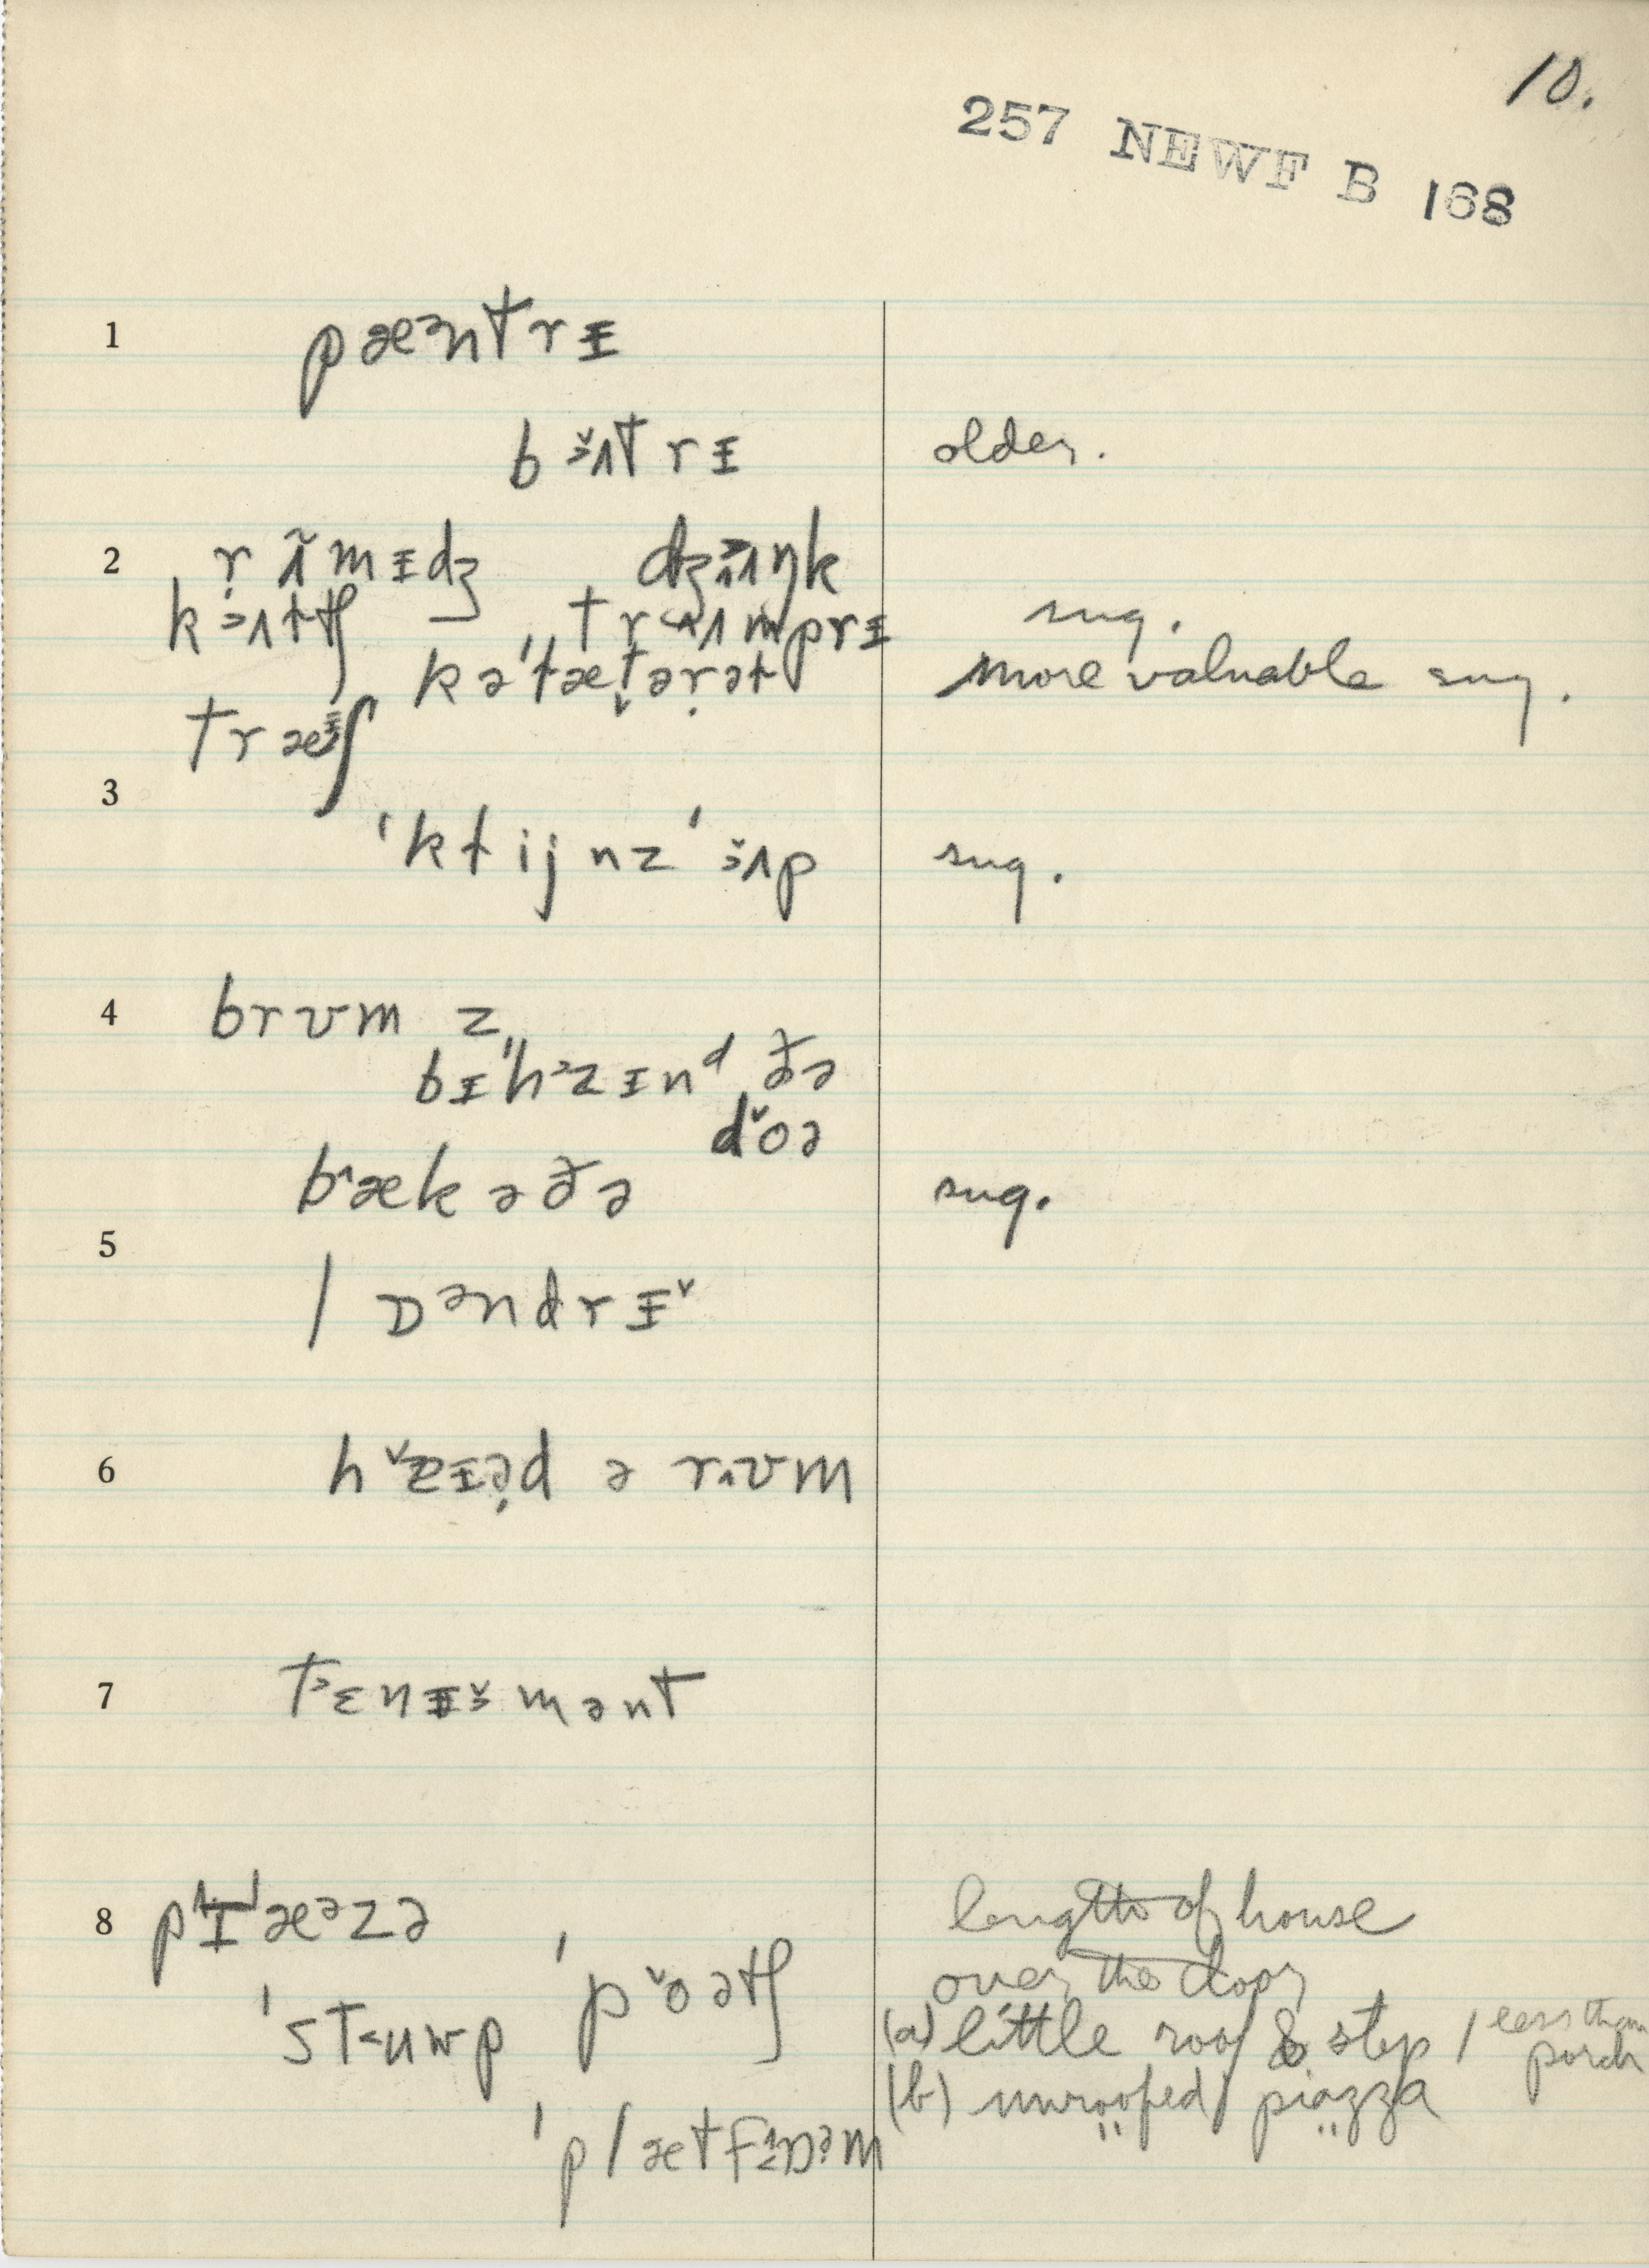 10.
257 NEWF B 168
1 pæᵊntrɪ
bɜʌtrɪ older.
2 rʌ̃mɪdʒ dʒɜʌŋk
trʌmprɪ sug.
kəˈtætərət more valuable sug.
træɪʃ
3
ˈktijnzˈɜʌp sug.
4 brʊm z
bɪˈhɜzɪnᵈ ðə
dˇoə
bˆæk ə ðə sug.
5
lɒᵊndrɪˇ
6 hˇæɪəd ə rʌʊm
7 t˃ɛnɪɜmənt
8 pɪˈæᵊzə length of house
ˈpˇoətʃ over the door
ˈst˂uwp (a) little roof & step / less than porch
(b) unroofed piazza
ˈplætfɒəm